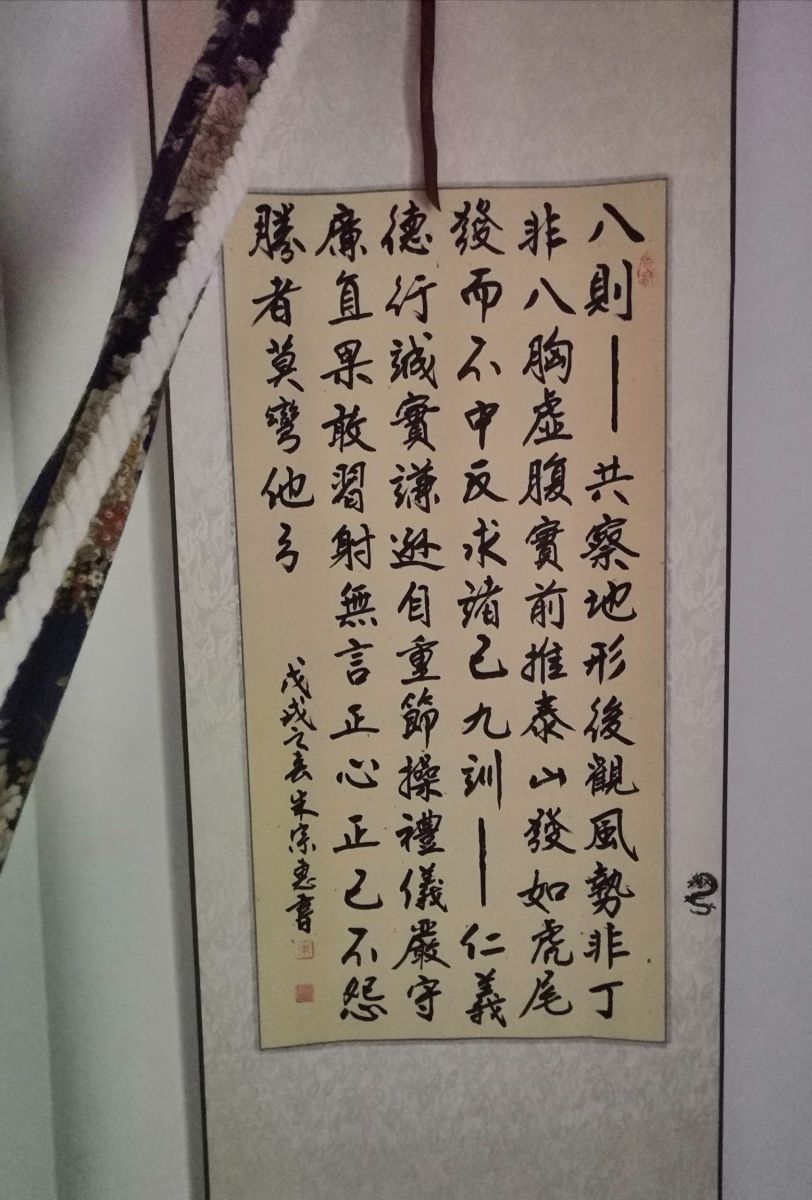 八則——共察地形後觀風勢非丁
非八胸虛腹實前推泰山發如虎尾
發而不中反求諸己九訓——仁義
德行誠實謙遜自重節操禮儀嚴守
廉直果敢習射無言正心正己不怨
勝者莫彎他弓
戊戌之春朱宗惠書